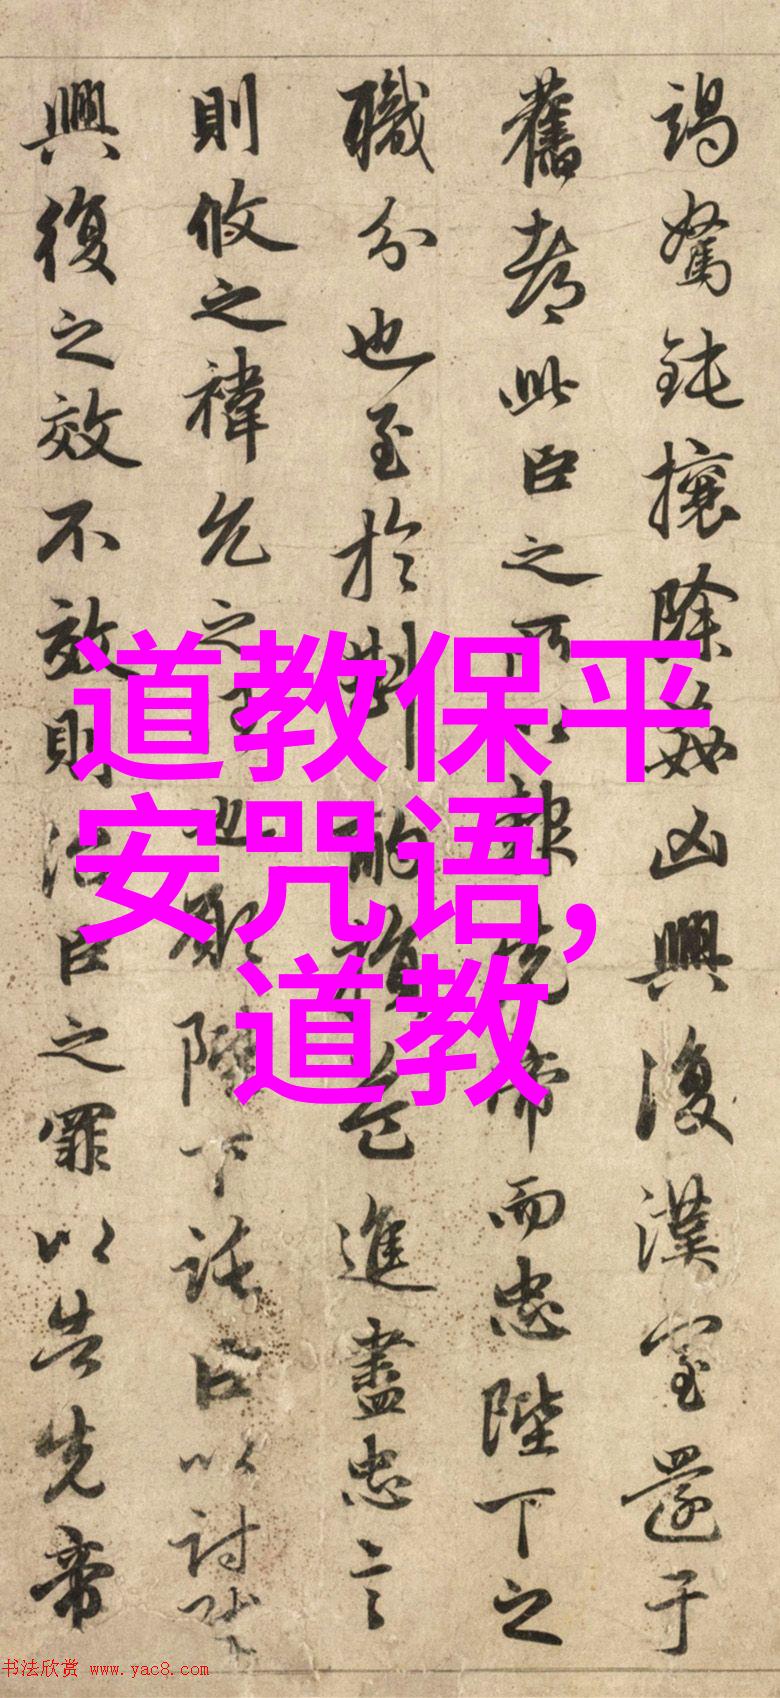 竭駑鈍攘除姦凶興復漢室還于
舊都此臣之所以報先帝而忠陛下之
職分也至於斟酌損益進盡忠言
則攸之禕允之任也願陛下託臣以討賊
興復之效不效則治臣之罪以告先帝
道教保平
安咒语,
道教
书法欣赏 www.yac8.com